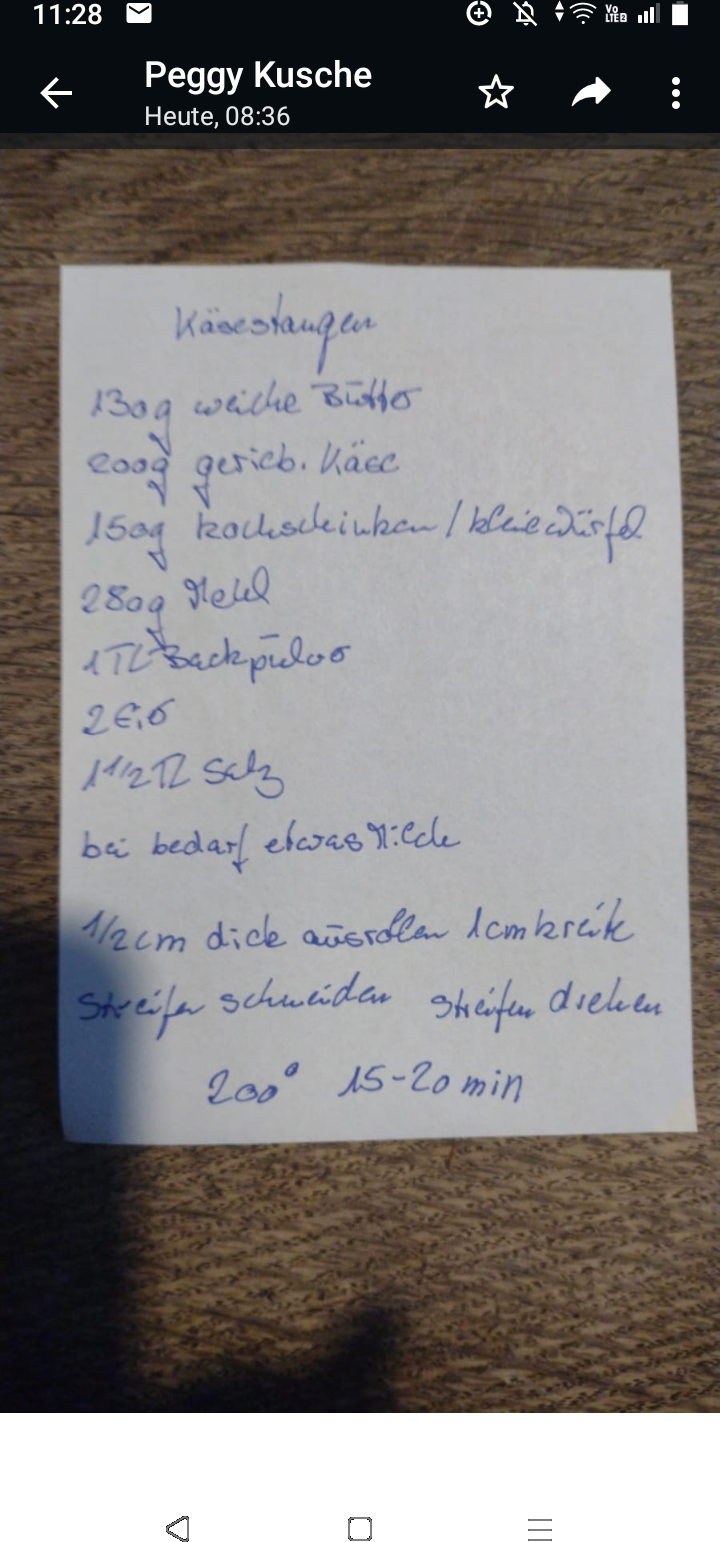 11:28
Vo LTE2
Peggy Kusche
Heute, 08:36
Käsestangen
130g weiche Butter
200g gerieb. Käse
150g Kochschinken / kleine Würfel
280g Mehl
1 TL Backpulver
2 Eier
1 1/2 TL Salz
bei bedarf etwas Milch
1/2 cm dick ausrollen 1cm breite
Streifen schneiden Streifen drehen
200° 15-20 min